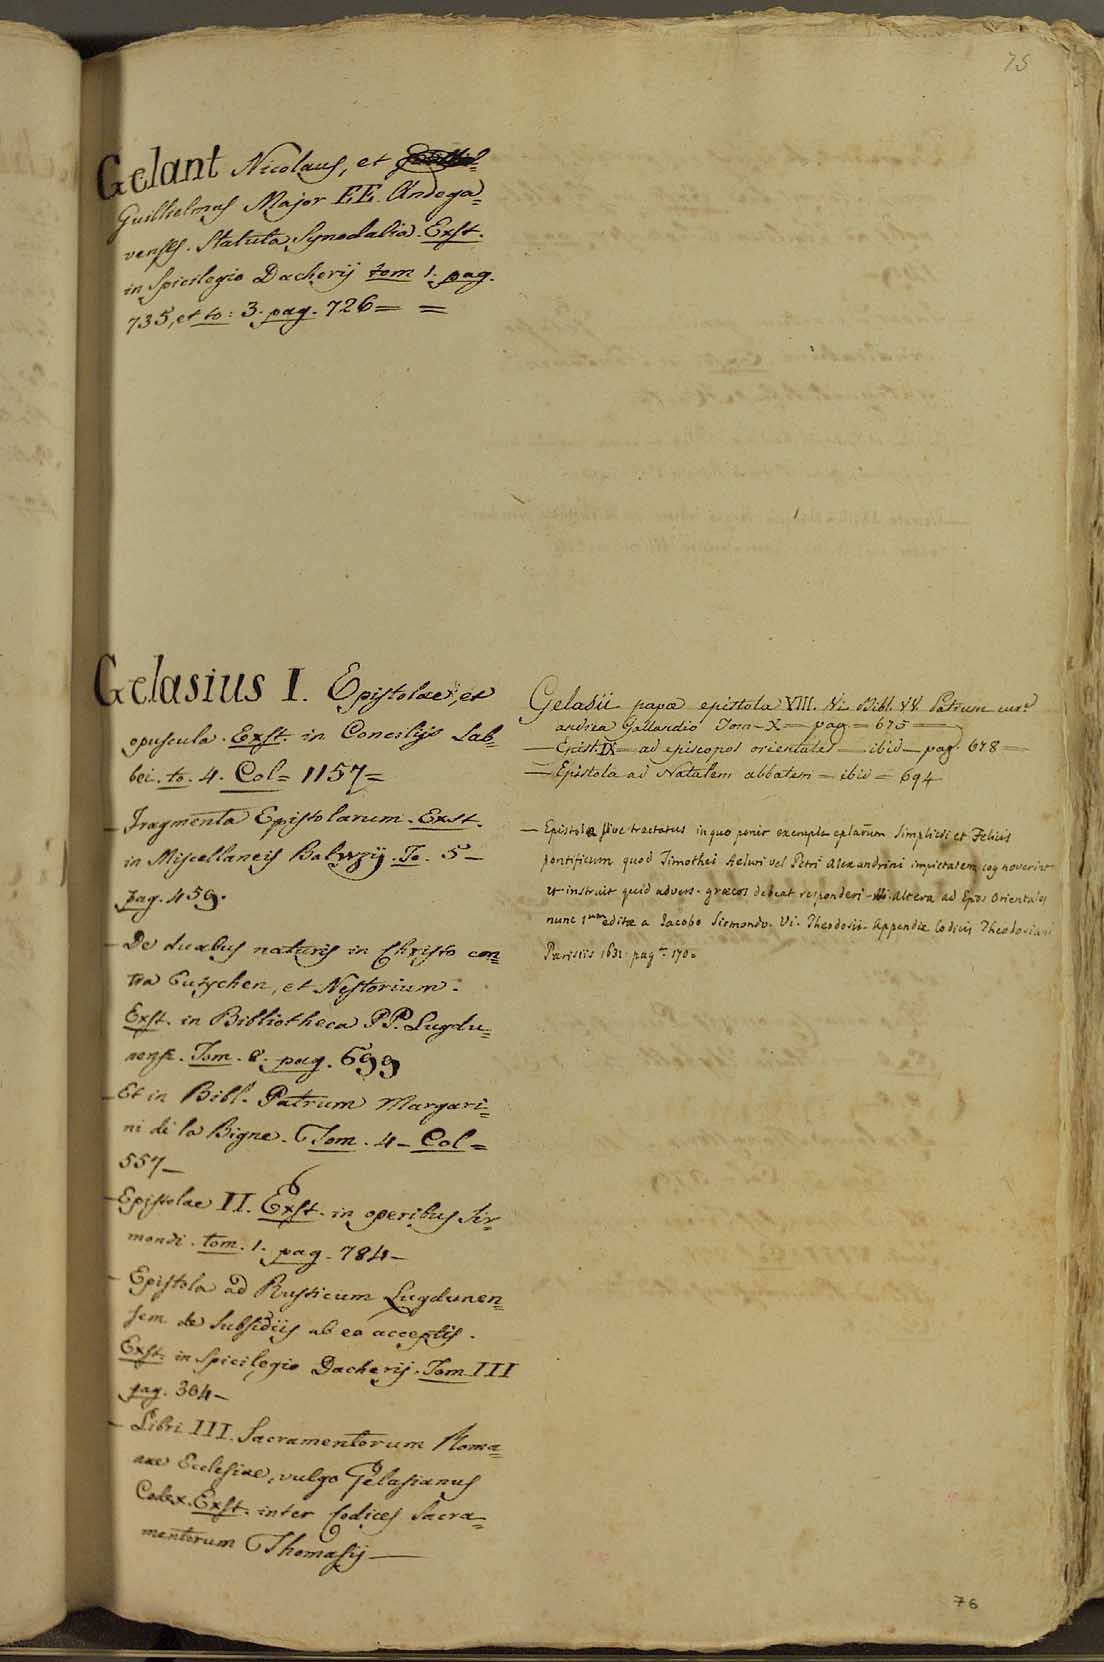 75
Gelant Nicolaus, et
Guillelmus Major EE. Andega=
venses. Statuta Synodalia. Exst.
in Spicilegio Dacherij tom 1. pag.
735, et to: 3. pag. 726= =
Gelasius I. Epistolae, et
opuscula. Exst. in Concilijs Lab=
bei. to. 4. Col= 1157=
— Fragmenta Epistolarum. Exst.
in Miscellaneis Baluzij. To. 5—
pag. 459.
— De duabus naturis in Christo con=
tra Eutychen, et Nestorium.
Exst. in Bibliotheca PP. Lugdu=
nense. Tom. 8. pag. 699
— Et in Bibl. Patrum Margari=
ni di la Bigne. Tom. 4— Col=
557—
— Epistolae II. Exst. in operibus Sir=
mondi. tom. 1. pag. 784—
— Epistola ad Rusticum Lugdunen=
sem de subsidiis ab eo acceptis.
Exst. in Spicilegio Dacherij. Tom III
pag. 304—
— Libri III. Sacramentorum Roma=
nae Ecclesiae, vulgo Gelasianus
Codex. Exst. inter Codices Sacra=
mentorum Thomasij—
Gelasii papæ epistola VIII. Bibl. VV Patrum cur.ᵉ
andrea Gallandio Tom-X— pag= 675=
— Epist. IX— ad episcopos orientales— ibid— pag. 678=
— Epistola ad Natalem abbatem= ibid= 694
— Epistola sive tractatus in quo ponit exempla eplarum Simplicii et Felicis
pontificum quod Timothei Aeluri vel Petri Alexandrini impietatem cognoverint
et instruit quid advers. græcos debeat responderi - Altera ad Epos Orientales
nunc 1ᵘᵐ editæ a Jacobo Sirmondo. Vi. Theodosii. Appendix Codicis Theodosiani
Parisiis 1631. pag. 170=
76